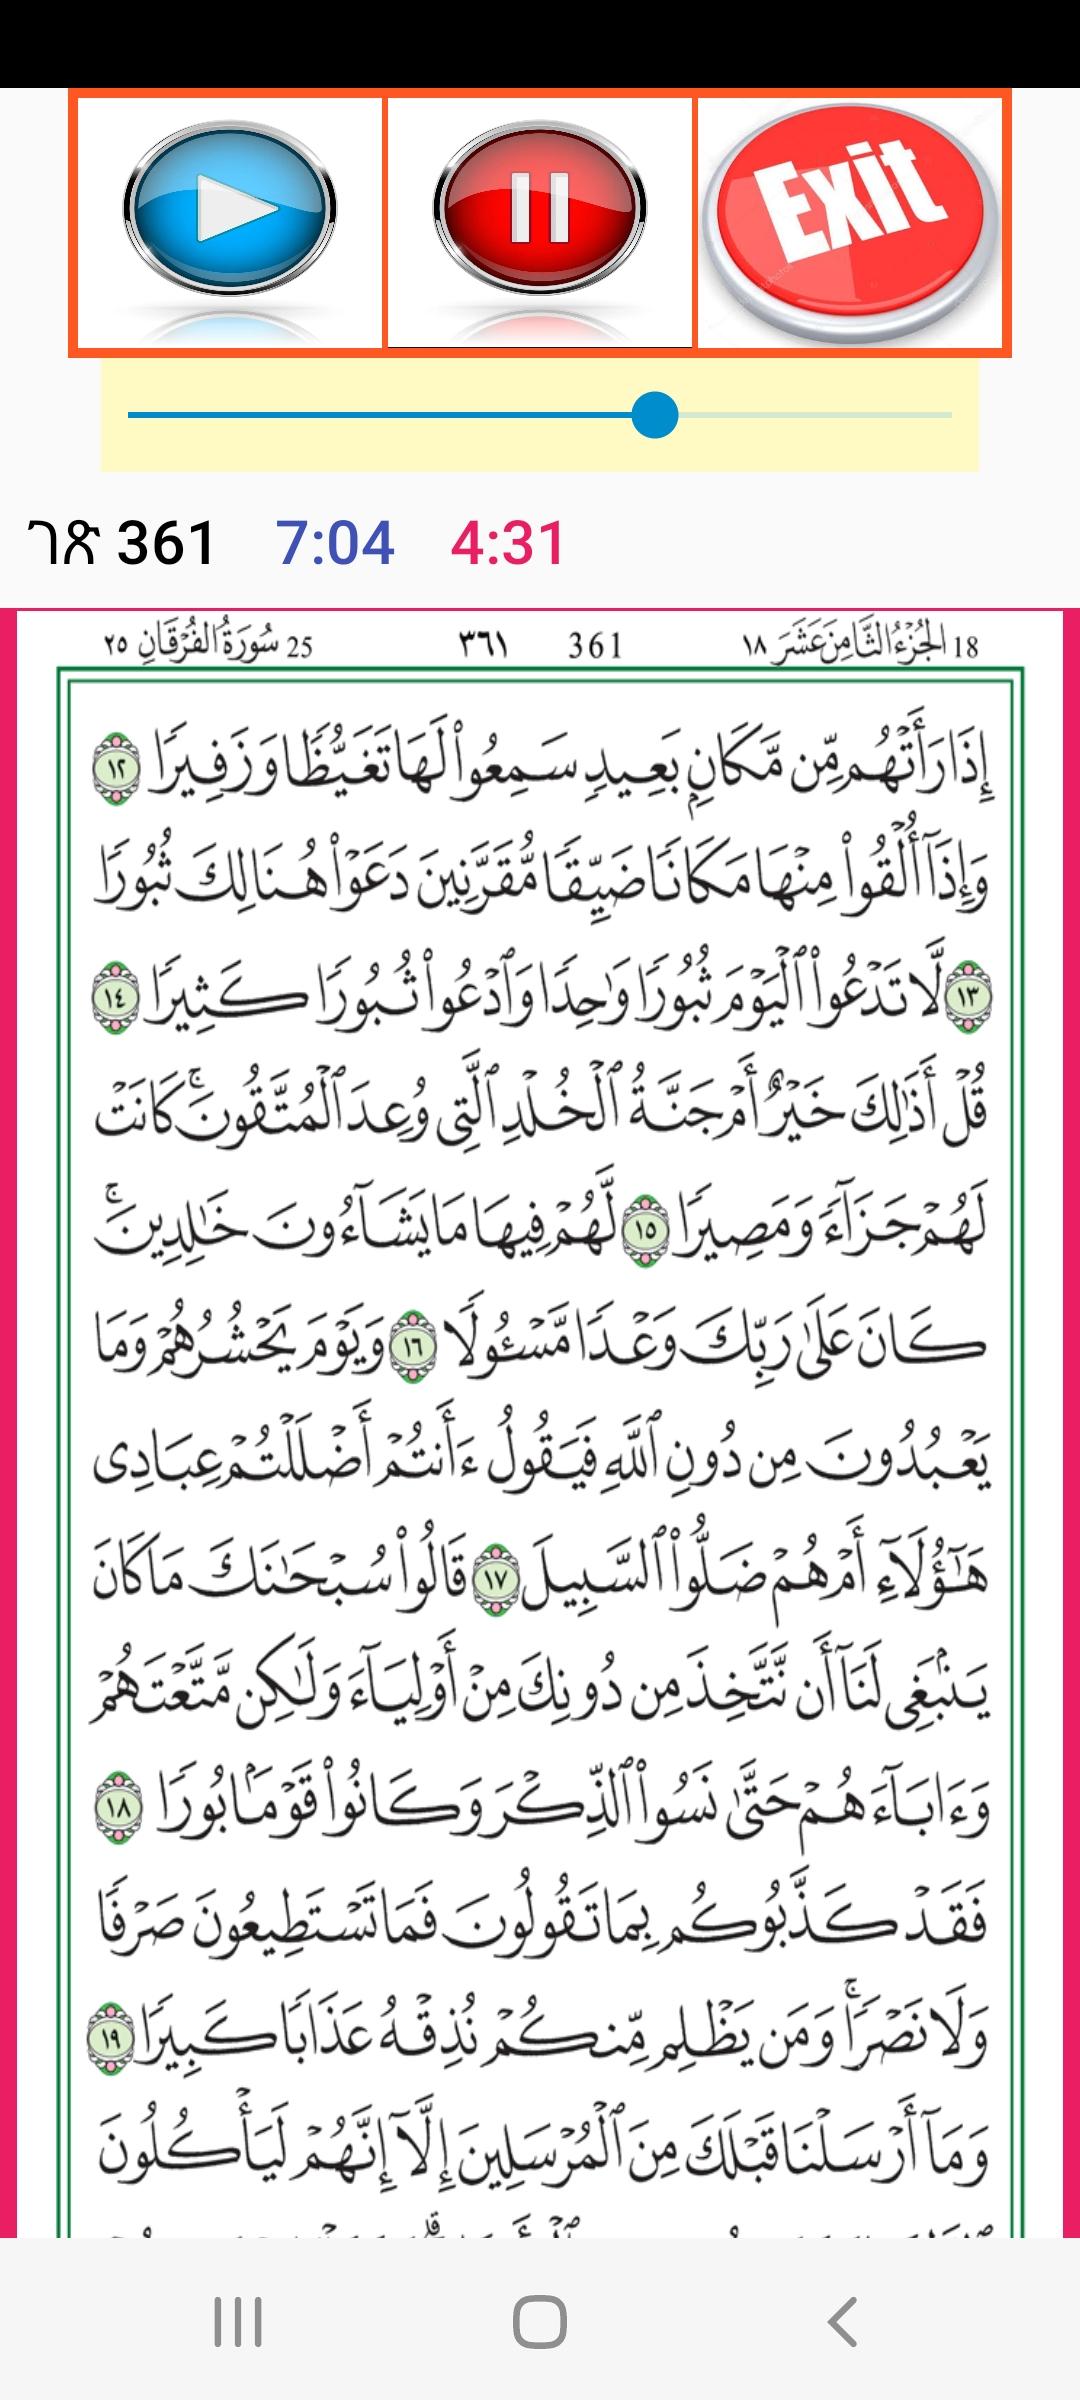 Exit
ገጽ 361 7:04 4:31
18 الجُزْءُ الثَّامِنَ عَشَرَ ١٨ 361 ٣٦١ 25 سُورَةُ الفُرْقَانِ ٢٥
إِذَا رَأَتْهُم مِّن مَّكَانِۭ بَعِيدٖ سَمِعُواْ لَهَا تَغَيُّظٗا وَزَفِيرٗا ١٢
وَإِذَآ أُلۡقُواْ مِنۡهَا مَكَانٗا ضَيِّقٗا مُّقَرَّنِينَ دَعَوۡاْ هُنَالِكَ ثُبُورٗا
١٣ لَّا تَدۡعُواْ ٱلۡيَوۡمَ ثُبُورٗا وَٰحِدٗا وَٱدۡعُواْ ثُبُورٗا كَثِيرٗا ١٤
قُلۡ أَذَٰلِكَ خَيۡرٌ أَمۡ جَنَّةُ ٱلۡخُلۡدِ ٱلَّتِي وُعِدَ ٱلۡمُتَّقُونَۚ كَانَتۡ
لَهُمۡ جَزَآءٗ وَمَصِيرٗا ١٥ لَّهُمۡ فِيهَا مَا يَشَآءُونَ خَٰلِدِينَۚ
كَانَ عَلَىٰ رَبِّكَ وَعۡدٗا مَّسۡـُٔولٗا ١٦ وَيَوۡمَ يَحۡشُرُهُمۡ وَمَا
يَعۡبُدُونَ مِن دُونِ ٱللَّهِ فَيَقُولُ ءَأَنتُمۡ أَضۡلَلۡتُمۡ عِبَادِي
هَٰٓؤُلَآءِ أَمۡ هُمۡ ضَلُّواْ ٱلسَّبِيلَ ١٧ قَالُواْ سُبۡحَٰنَكَ مَا كَانَ
يَنۢبَغِي لَنَآ أَن نَّتَّخِذَ مِن دُونِكَ مِنۡ أَوۡلِيَآءَ وَلَٰكِن مَّتَّعۡتَهُمۡ
وَءَابَآءَهُمۡ حَتَّىٰ نَسُواْ ٱلذِّكۡرَ وَكَانُواْ قَوۡمَۢا بُورٗا ١٨
فَقَدۡ كَذَّبُوكُم بِمَا تَقُولُونَ فَمَا تَسۡتَطِيعُونَ صَرۡفٗا
وَلَا نَصۡرٗاۚ وَمَن يَظۡلِم مِّنكُمۡ نُذِقۡهُ عَذَابٗا كَبِيرٗا ١٩
وَمَآ أَرۡسَلۡنَا قَبۡلَكَ مِنَ ٱلۡمُرۡسَلِينَ إِلَّآ إِنَّهُمۡ لَيَأۡكُلُونَ